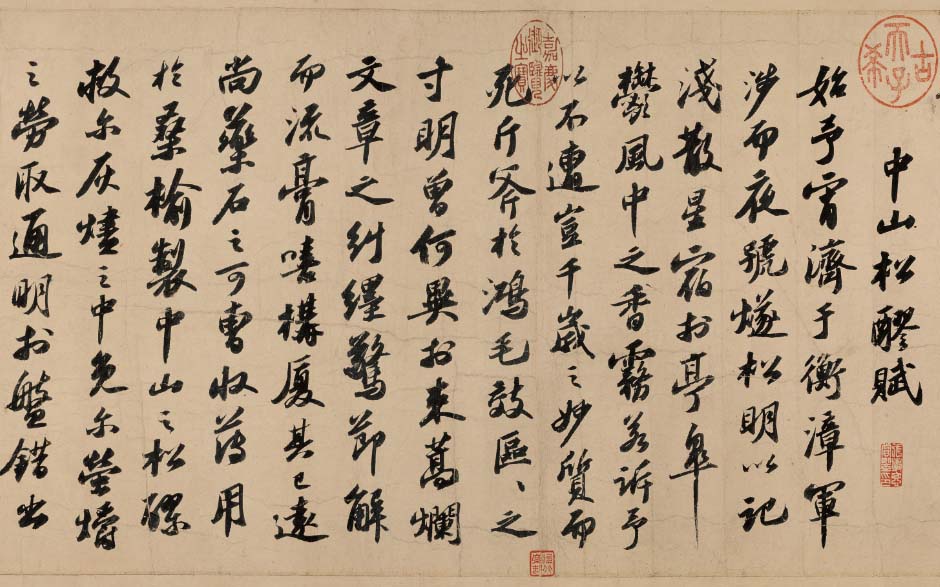 古希天子
中山松醪賦
始予宵濟于衡漳軍
涉而夜號燧松明以記
淺散星宿於亭皋
欝風中之香霧若訴予
以不遭豈千歲之妙質而
死斤斧於鴻毛效區、之
寸明曾何異於束蒿爛
文章之糾纆驚節解
而流膏嘻構厦其已遠
尚藥石之可曹收薄用
於桑榆製中山之松醪
救尓灰燼之中免尓螢爝
之勞取通明於盤錯出
嘉慶御覽之寶